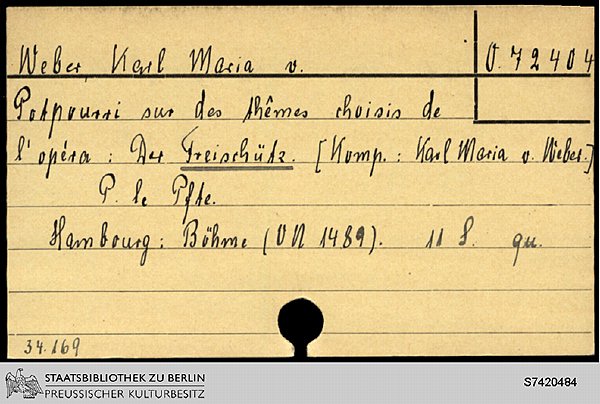 Weber, Karl Maria v.
O. 72404
Potpourri sur des thêmes choisis de
l'opéra: Der Freischütz. [Komp.: Karl Maria v. Weber.]
P. le Pfte.
Hambourg: Böhme (VN 1489). 11 S. qu.
34.169
STAATSBIBLIOTHEK ZU BERLIN
PREUSSISCHER KULTURBESITZ
S7420484